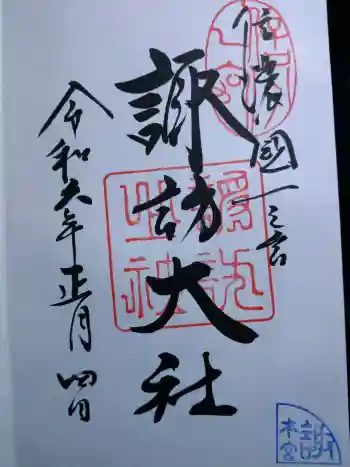 信濃國一之宮
諏訪大社
令和六年正月四日
諏訪
本宮